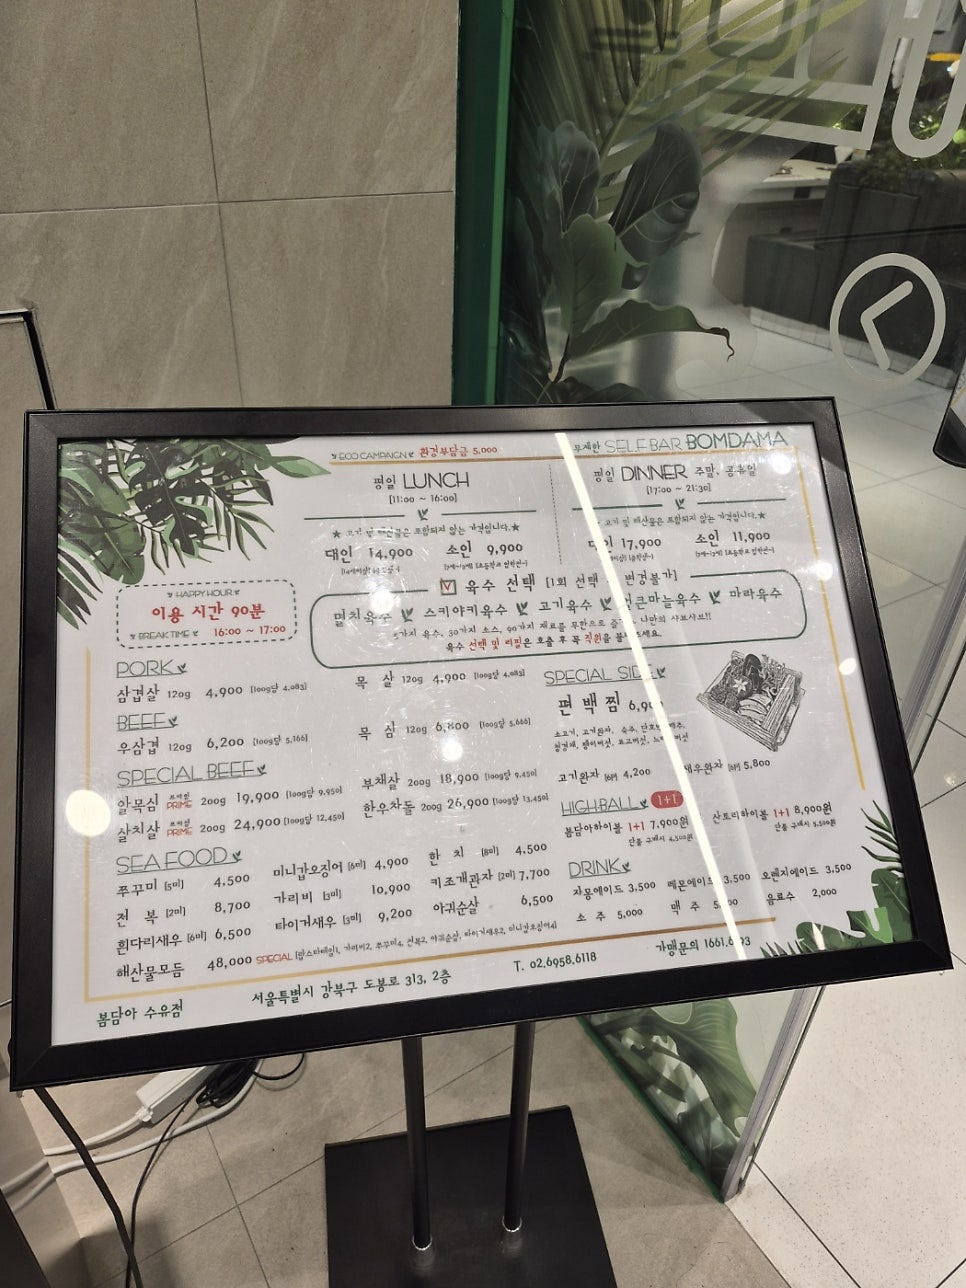 ECO CAMPAIGN 환경부담금 5,000
무제한 SELF BAR BOMDAMA
평일 LUNCH
[11:00 ~ 16:00]
★ 고기 및 해산물은 포함되지 않는 가격입니다.★
대인 14,900 소인 9,900
평일 DINNER 주말, 공휴일
[17:00 ~ 21:30]
고기 및 해산물은 포함되지 않는 가격입니다.★
대인 17,900 소인 11,900
HAPPY HOUR
이용 시간 90분
BREAK TIME 16:00 ~ 17:00
육수 선택 [1회 선택 변경불가]
멸치육수 스키야키육수 고기육수 마늘육수 마라육수
가지 육수, 30가지 소스, 90가지 재료를 무한으로 나만의 샤브샤브!!
육수 선택 및 리필은 호출 후 꼭 직원을
PORK
삼겹살 120g 4,900 [100g당 4,083]
목 살 120g 4,900 [100g당 4,083]
BEEF
우삼겹 120g 6,200 [100g당 5,166]
목 심 120g 6,800 [100g당 5,666]
SPECIAL BEEF
알목심 프라임 PRIME 200g 19,900 [100g당 9,950]
부채살 200g 18,900 [100g당 9,450]
살치살 프라임 PRIME 200g 24,900 [100g당 12,450]
한우차돌 200g 26,900 [100g당 13,450]
SEA FOOD
쭈꾸미 [5미] 4,500 미니갑오징어 [6미] 4,900 한 치 [8미] 4,500
전 복 [2미] 8,700 가리비 [3미] 10,900 키조개관자 [2미] 7,700
흰다리새우 [6미] 6,500 타이거새우 [3미] 9,200 아귀순살 6,500
해산물모듬 48,000 SPECIAL [랍스타테일1, 가리비2, 쭈꾸미4, 전복2, 아귀순살, 타이거새우2, 미니갑오징어4]
SPECIAL SIDE
편백찜 6,900
소고기, 고기완자, 숙주, 단호박, 배추,
청경채, 팽이버섯, 표고버섯, 느타리버섯
고기완자 [6P] 4,200 새우완자 [6P] 5,800
HIGHBALL 1+1
봄담아하이볼 1+1 7,900원 산토리하이볼 1+1 8,900원
단품 구매시 4,500원 단품 구매시 5,500원
DRINK
자몽에이드 3,500 레몬에이드 3,500 오렌지에이드 3,500
소 주 5,000 맥 주 음료수 2,000
봄담아 수유점 서울특별시 강북구 도봉로 313, 2층 T. 02.6958.6118 가맹문의